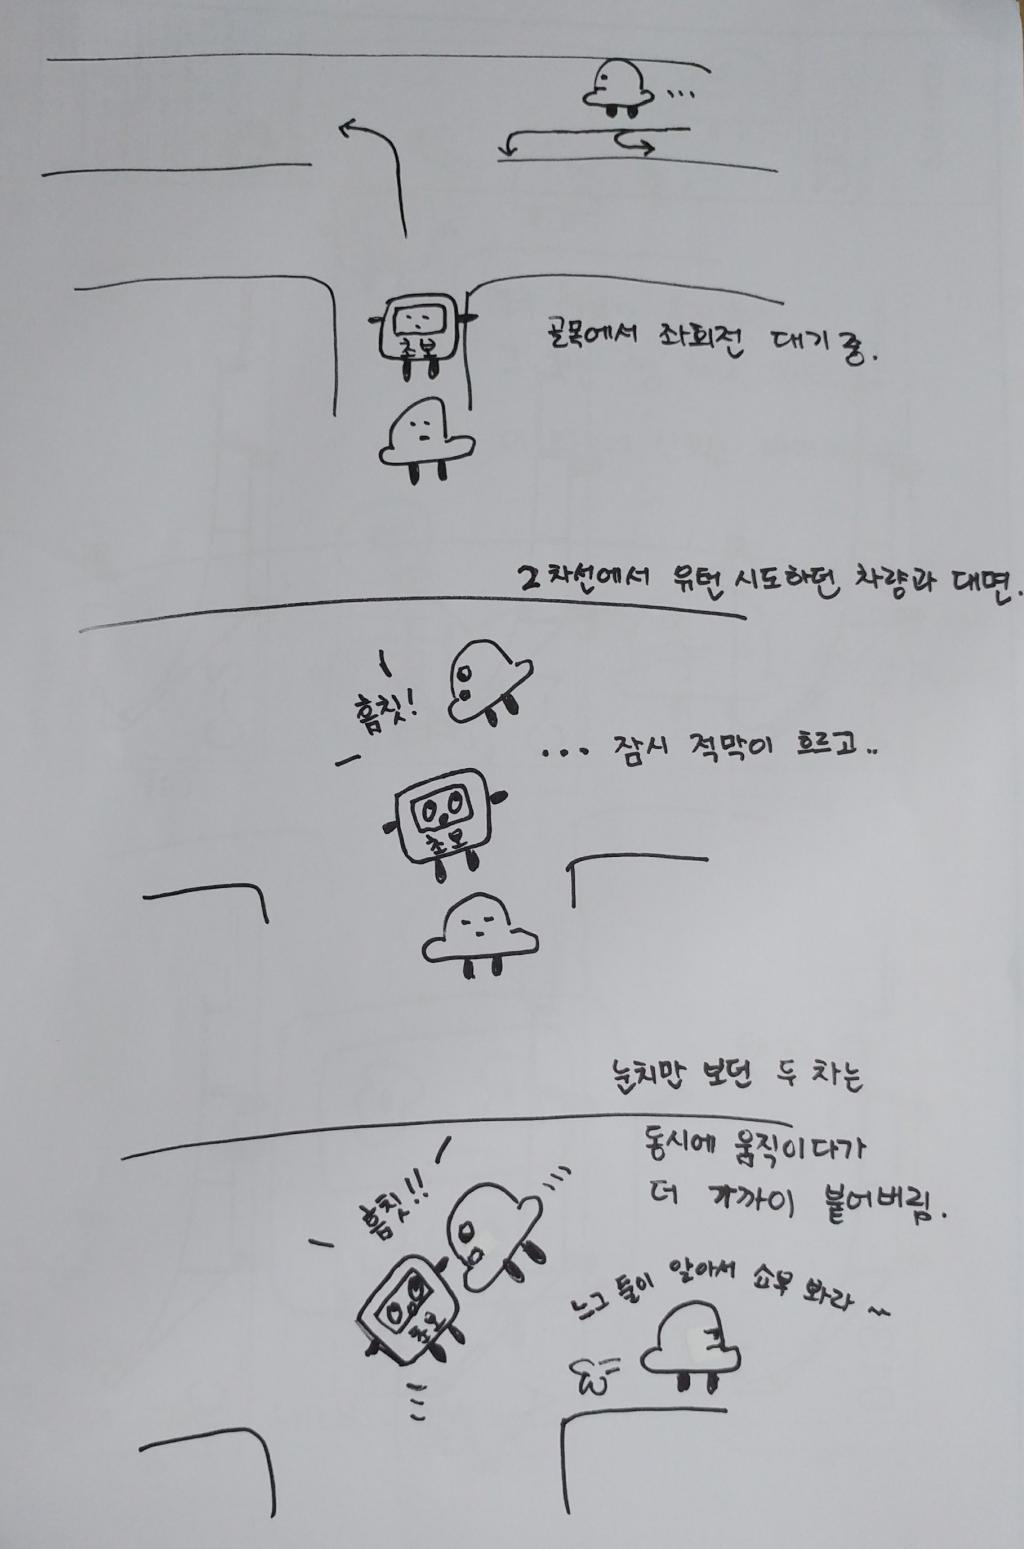 초보
골목에서 좌회전 대기 중.
2차선에서 유턴 시도하던 차량과 대면.
흠칫!
... 잠시 적막이 흐르고..
초보
눈치만 보던 두 차는
동시에 움직이다가
더 가까이 붙어버림.
흠칫!!
초보
느그 둘이 알아서 쇼부 봐라~